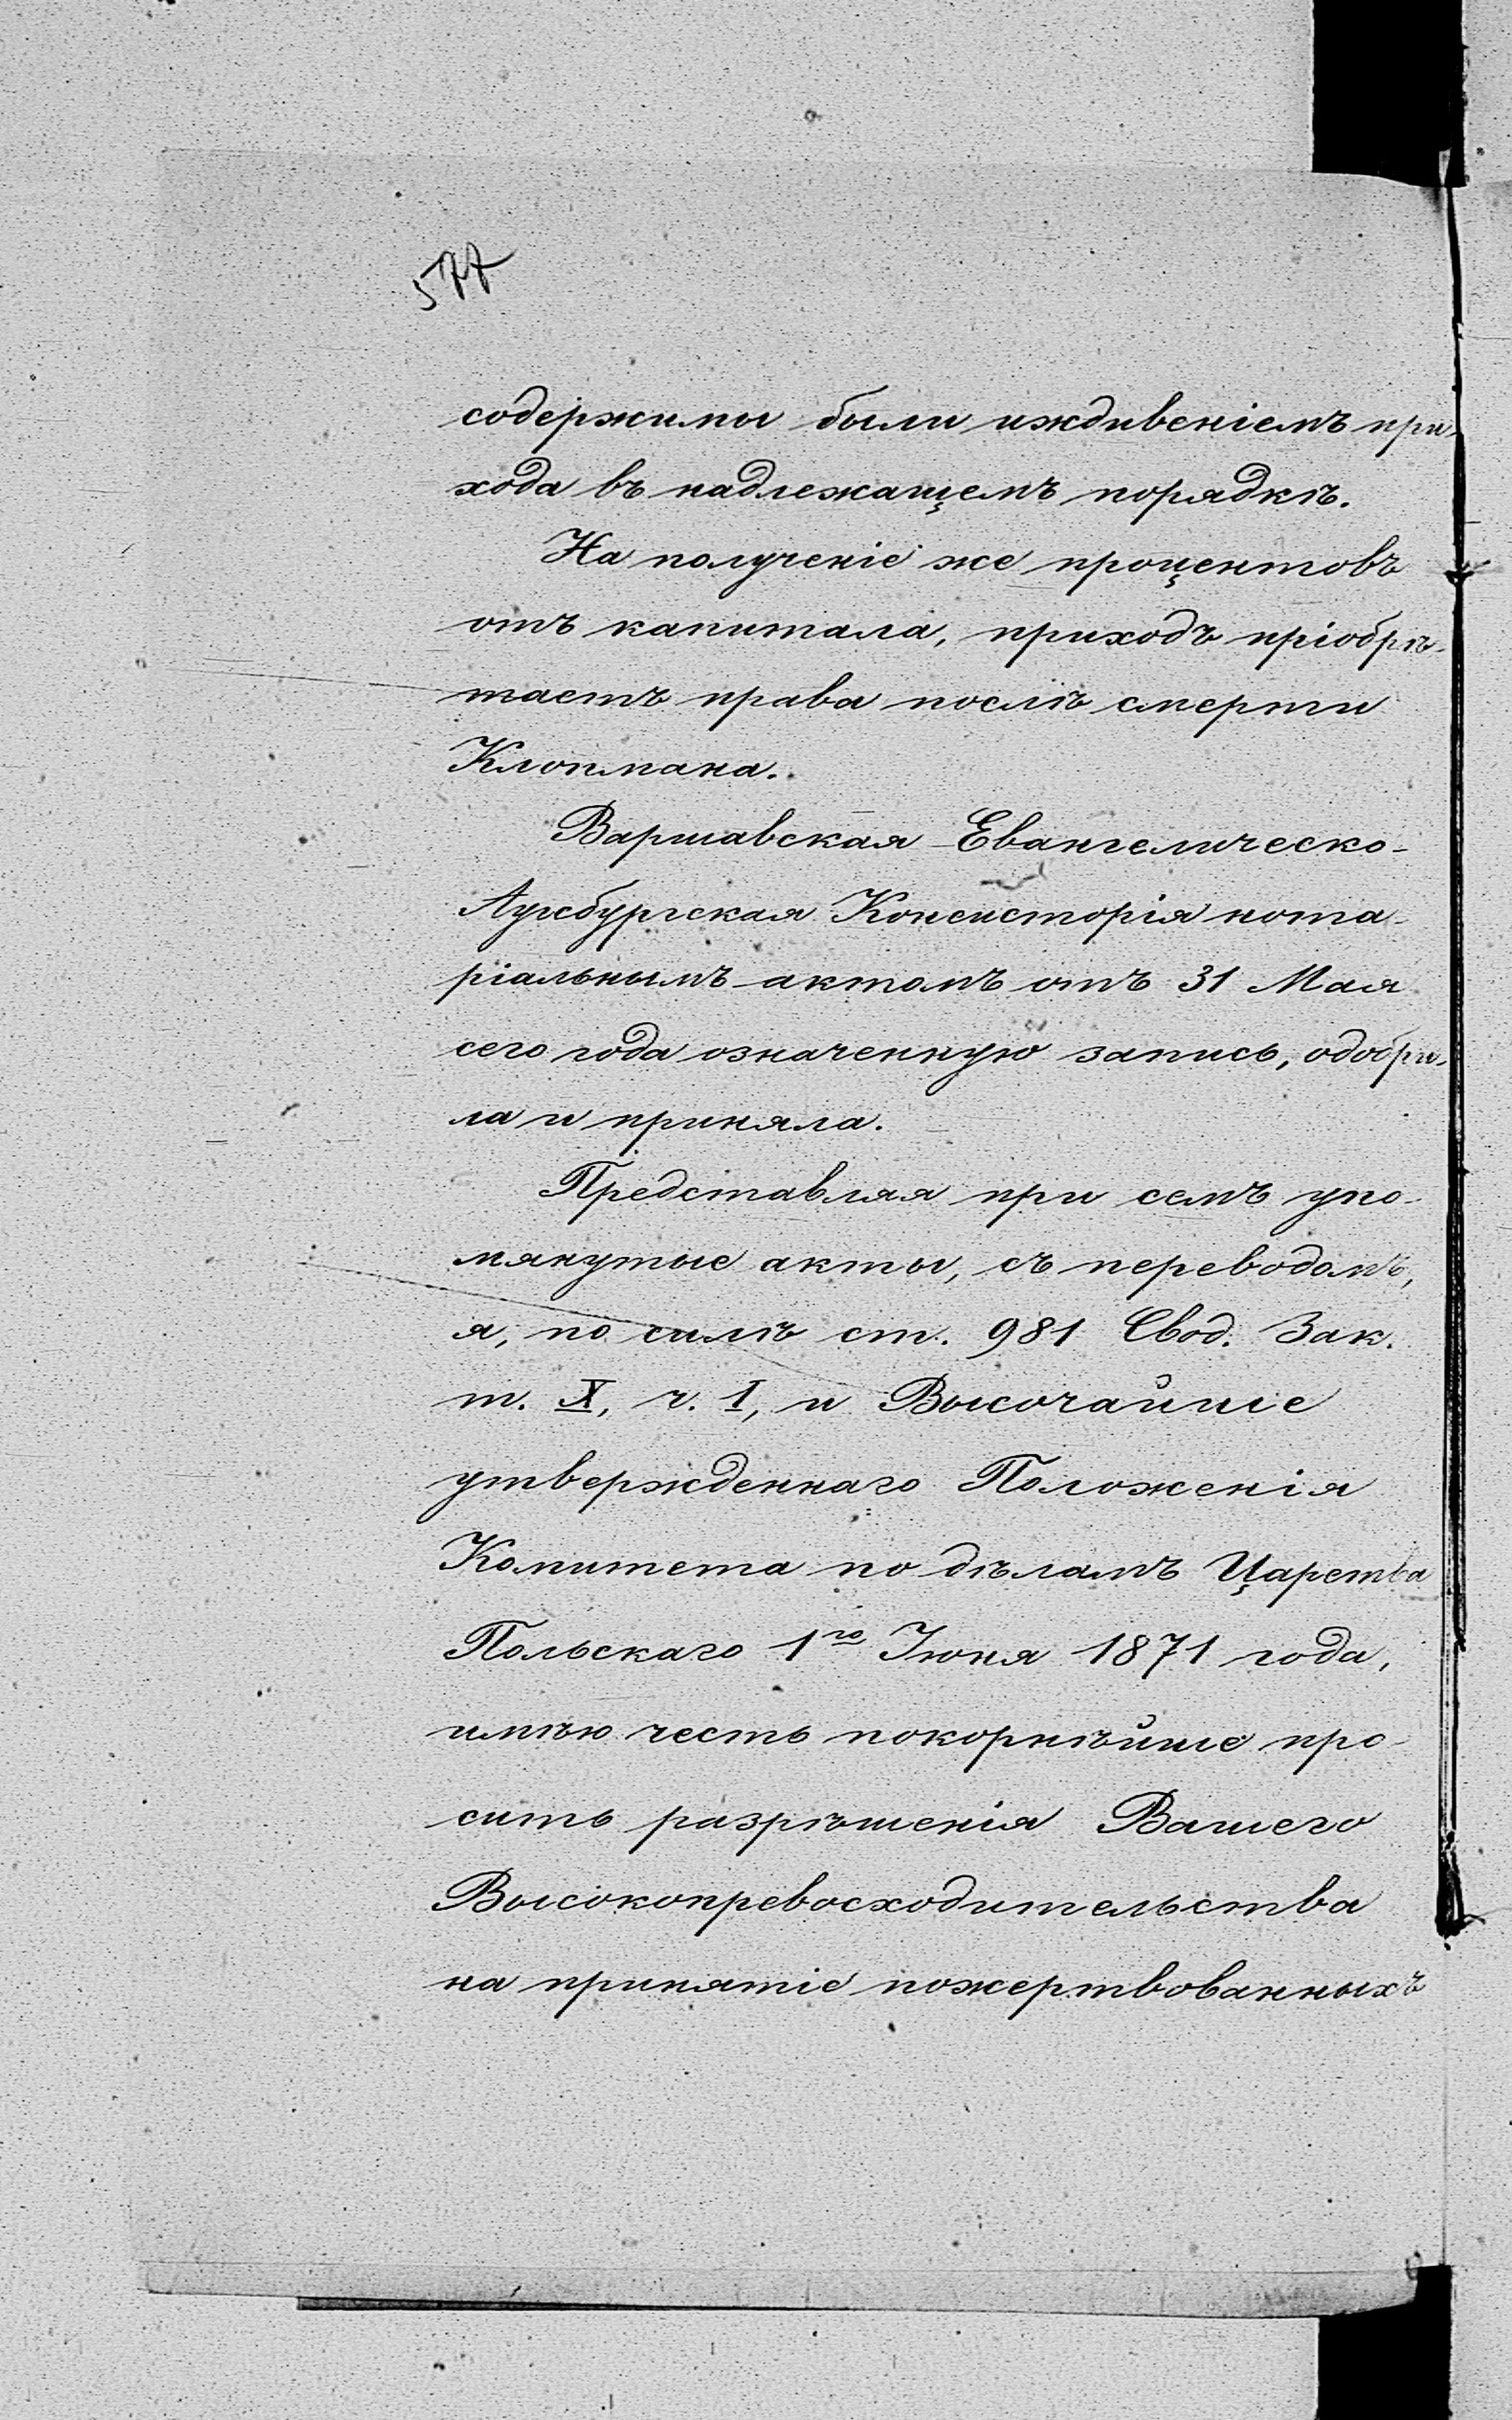 577
содержимы были иждивеніемъ при-
хода въ надлежащемъ порядкѣ.
На полученіе же процентовъ
отъ капитала, приходъ пріобрѣ-
таетъ права послѣ смерти
Клопмана.
Варшавская Евангелическо-
Аугсбургская Консисторія нота-
ріальнымъ актомъ отъ 31 Мая
сего года означенную запись, одобри-
ла и приняла.
Представляя при семъ упо-
мянутые акты, съ переводомъ,
я, по силѣ ст. 981 Свод. Зак.
т. X, ч. I, и Высочайше
утвержденнаго Положенія
Комитета по дѣламъ Царства
Польскаго 1го Іюня 1871 года,
имѣю честь покорнѣйше про-
сить разрѣшенія Вашего
Высокопревосходительства
на принятіе пожертвованныхъ